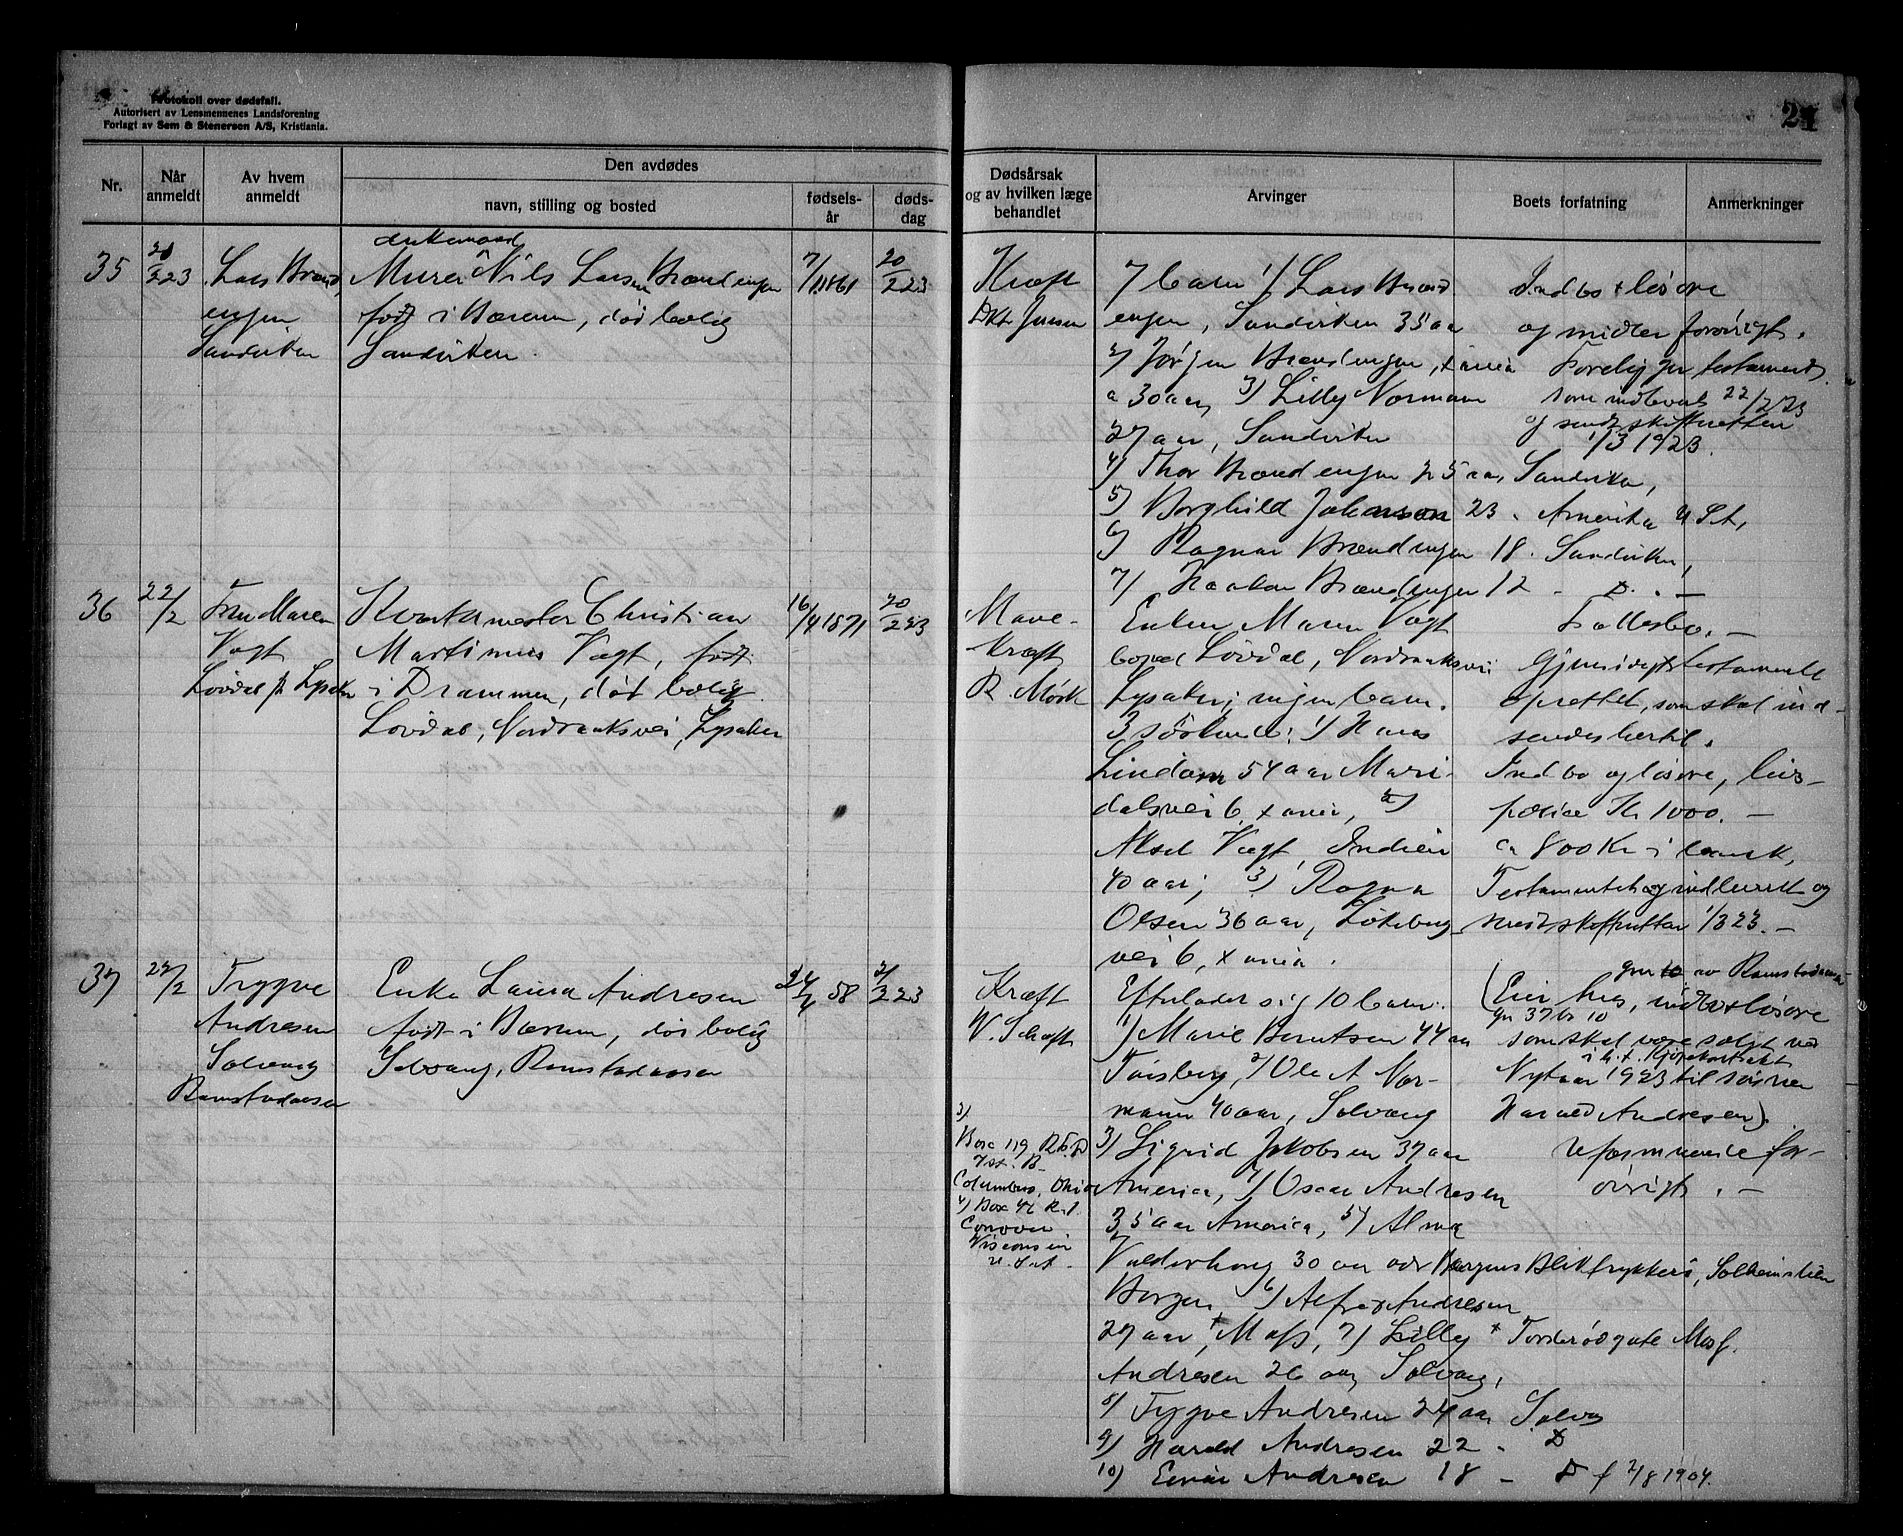 Protokoll over dødsfall.
Autorisert av Lensmennenes Landsforening
Forlagt av Sem & Stenersen A/S, Kristiania.
21
Nr.
Når anmeldt
Av hvem anmeldt
Den avdødes
navn, stilling og bosted
fødsels-år
døds-dag
Dødsårsak og av hvilken læge behandlet
Arvinger
Boets forfatning
Anmerkninger
35
20/2 23
Lars Brænd
engen
Sandviken
enkemand
Murer Nils Larsen Brændengen
født i Bærum, død bolig
Sandviken
1861
20/2 23
Kræft
Dr Jensen
7 barn 1) Lars Brænd
engen, Sandviken 35 aar
2) Jørgen Brændengen, Xania
a 30 aar, 3) Lilly Normann
27 aar, Sandviken
4) Thor Brændengen 25 aar, Sandviken,
5) Borghild Johanson 23 - Amerika U St,
6) Ragnar Brændengen 18 - Sandviken,
7) Haakon Brændengen 12 - D. -
Indbo + løsøre
og midler forøvrigt.
testament
som indlevert 22/2 23
og sendt skifteretten
1/3 1923.
36
22/2
Fru Maren
Vogt
Løvdal pr Lysaker
Christian
Martinius Vogt, født
i Drammen, død bolig
Løvdal, Nordraaksvei, Lysaker
16/4 1871
20/2 23
Mave-
kræft
R. Mørk
Enken Maren Vogt
boped Løvdal, Nordraaksvei
Lysaker; ingen barn.
3 søskende: 1) Hans
Lindom 54 aar Mari-
dalsvei 6 Xania, 2)
Aksel Vogt, Indien
40 aar; 3) Ragna
Olsen 36 aar, Løkeberg
vei 6, Xania.
Fællesbo. -
Gjensidigt testamente
oprettet, som skal ind-
sendes hertil.
Indbo og løsøre, livs-
police Kr 1000. -
ca 800 Kr i bank,
Testamentet og indlevert og
sendt skifteretten 1/3 23. -
37
27/2
Trygve
Andresen
Solvang
Ramstadaasen
Enke Laura Andresen
født i Bærum, død bolig
Solvang, Ramstadaasen
24/4 58
2/2 23
Kræft
W. Schøft
Efterlader sig 10 barn:
1) Marie Berntsen 44 aar
Tønsberg, 2) Ole A Nor-
mann 40 aar, Solvang
3) Sigrid Jakobsen 37 aar
America, 4) Oscar Andresen
35 aar America, 5) Alma
Valderhaug 30 aar adr Bergens Blikktrykkeri, Solheimslien
Bergen, 6) Alfred Andresen
27 aar, Moss, 7) Lilly x Torderødgate Moss.
Andresen 26 aar, Solvang,
8) Trygve Andresen 24 aar Solvang
9) Harald Andresen 22 - D
10) Einar Andresen 18 - D f 2/8 1904.
3)
Box 119
Columbus, Ohio
4) Box 42 R. 1.
Conover
Wisconsin
U.S.A.
av Ramstadaasen
(Eier hus, indbo + løsøre
gn 37 br 10
som skal være solgt ved
i h.t. kjøpekontrakt
Nytaar 1923 til sønnen
Harald Andresen).
for-
øvrigt. -